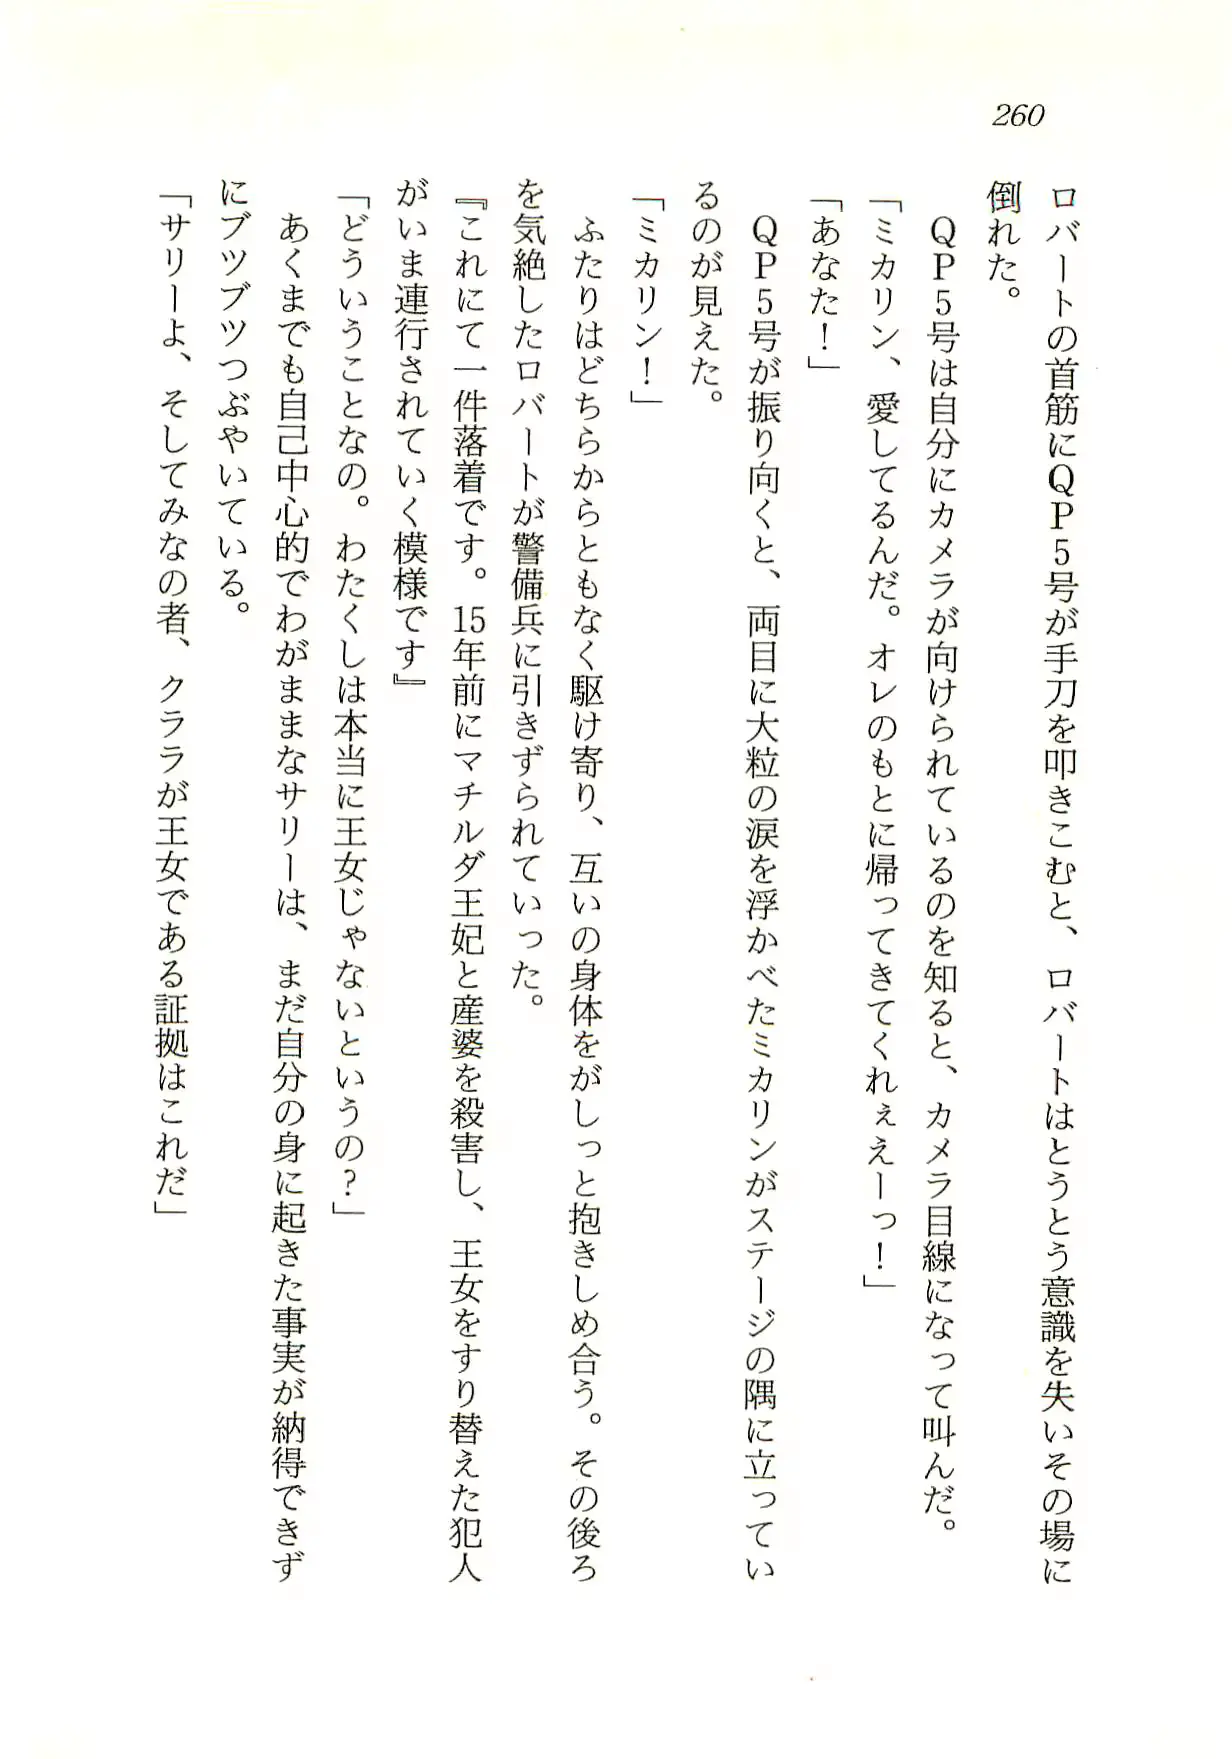 260
ロバートの首筋にQP5号が手刀を叩きこむと、ロバートはとうとう意識を失いその場に
倒れた。
　QP5号は自分にカメラが向けられているのを知ると、カメラ目線になって叫んだ。
「ミカリン、愛してるんだ。オレのもとに帰ってきてくれぇえーっ！」
「あなた！」
　QP5号が振り向くと、両目に大粒の涙を浮かべたミカリンがステージの隅に立ってい
るのが見えた。
「ミカリン！」
　ふたりはどちらからともなく駆け寄り、互いの身体をがしっと抱きしめ合う。その後ろ
を気絶したロバートが警備兵に引きずられていった。
『これにて一件落着です。15年前にマチルダ王妃と産婆を殺害し、王女をすり替えた犯人
がいま連行されていく模様です』
「どういうことなの。わたくしは本当に王女じゃないというの？」
　あくまでも自己中心的でわがままなサリーは、まだ自分の身に起きた事実が納得できず
にブツブツつぶやいている。
「サリーよ、そしてみなの者、クララが王女である証拠はこれだ」